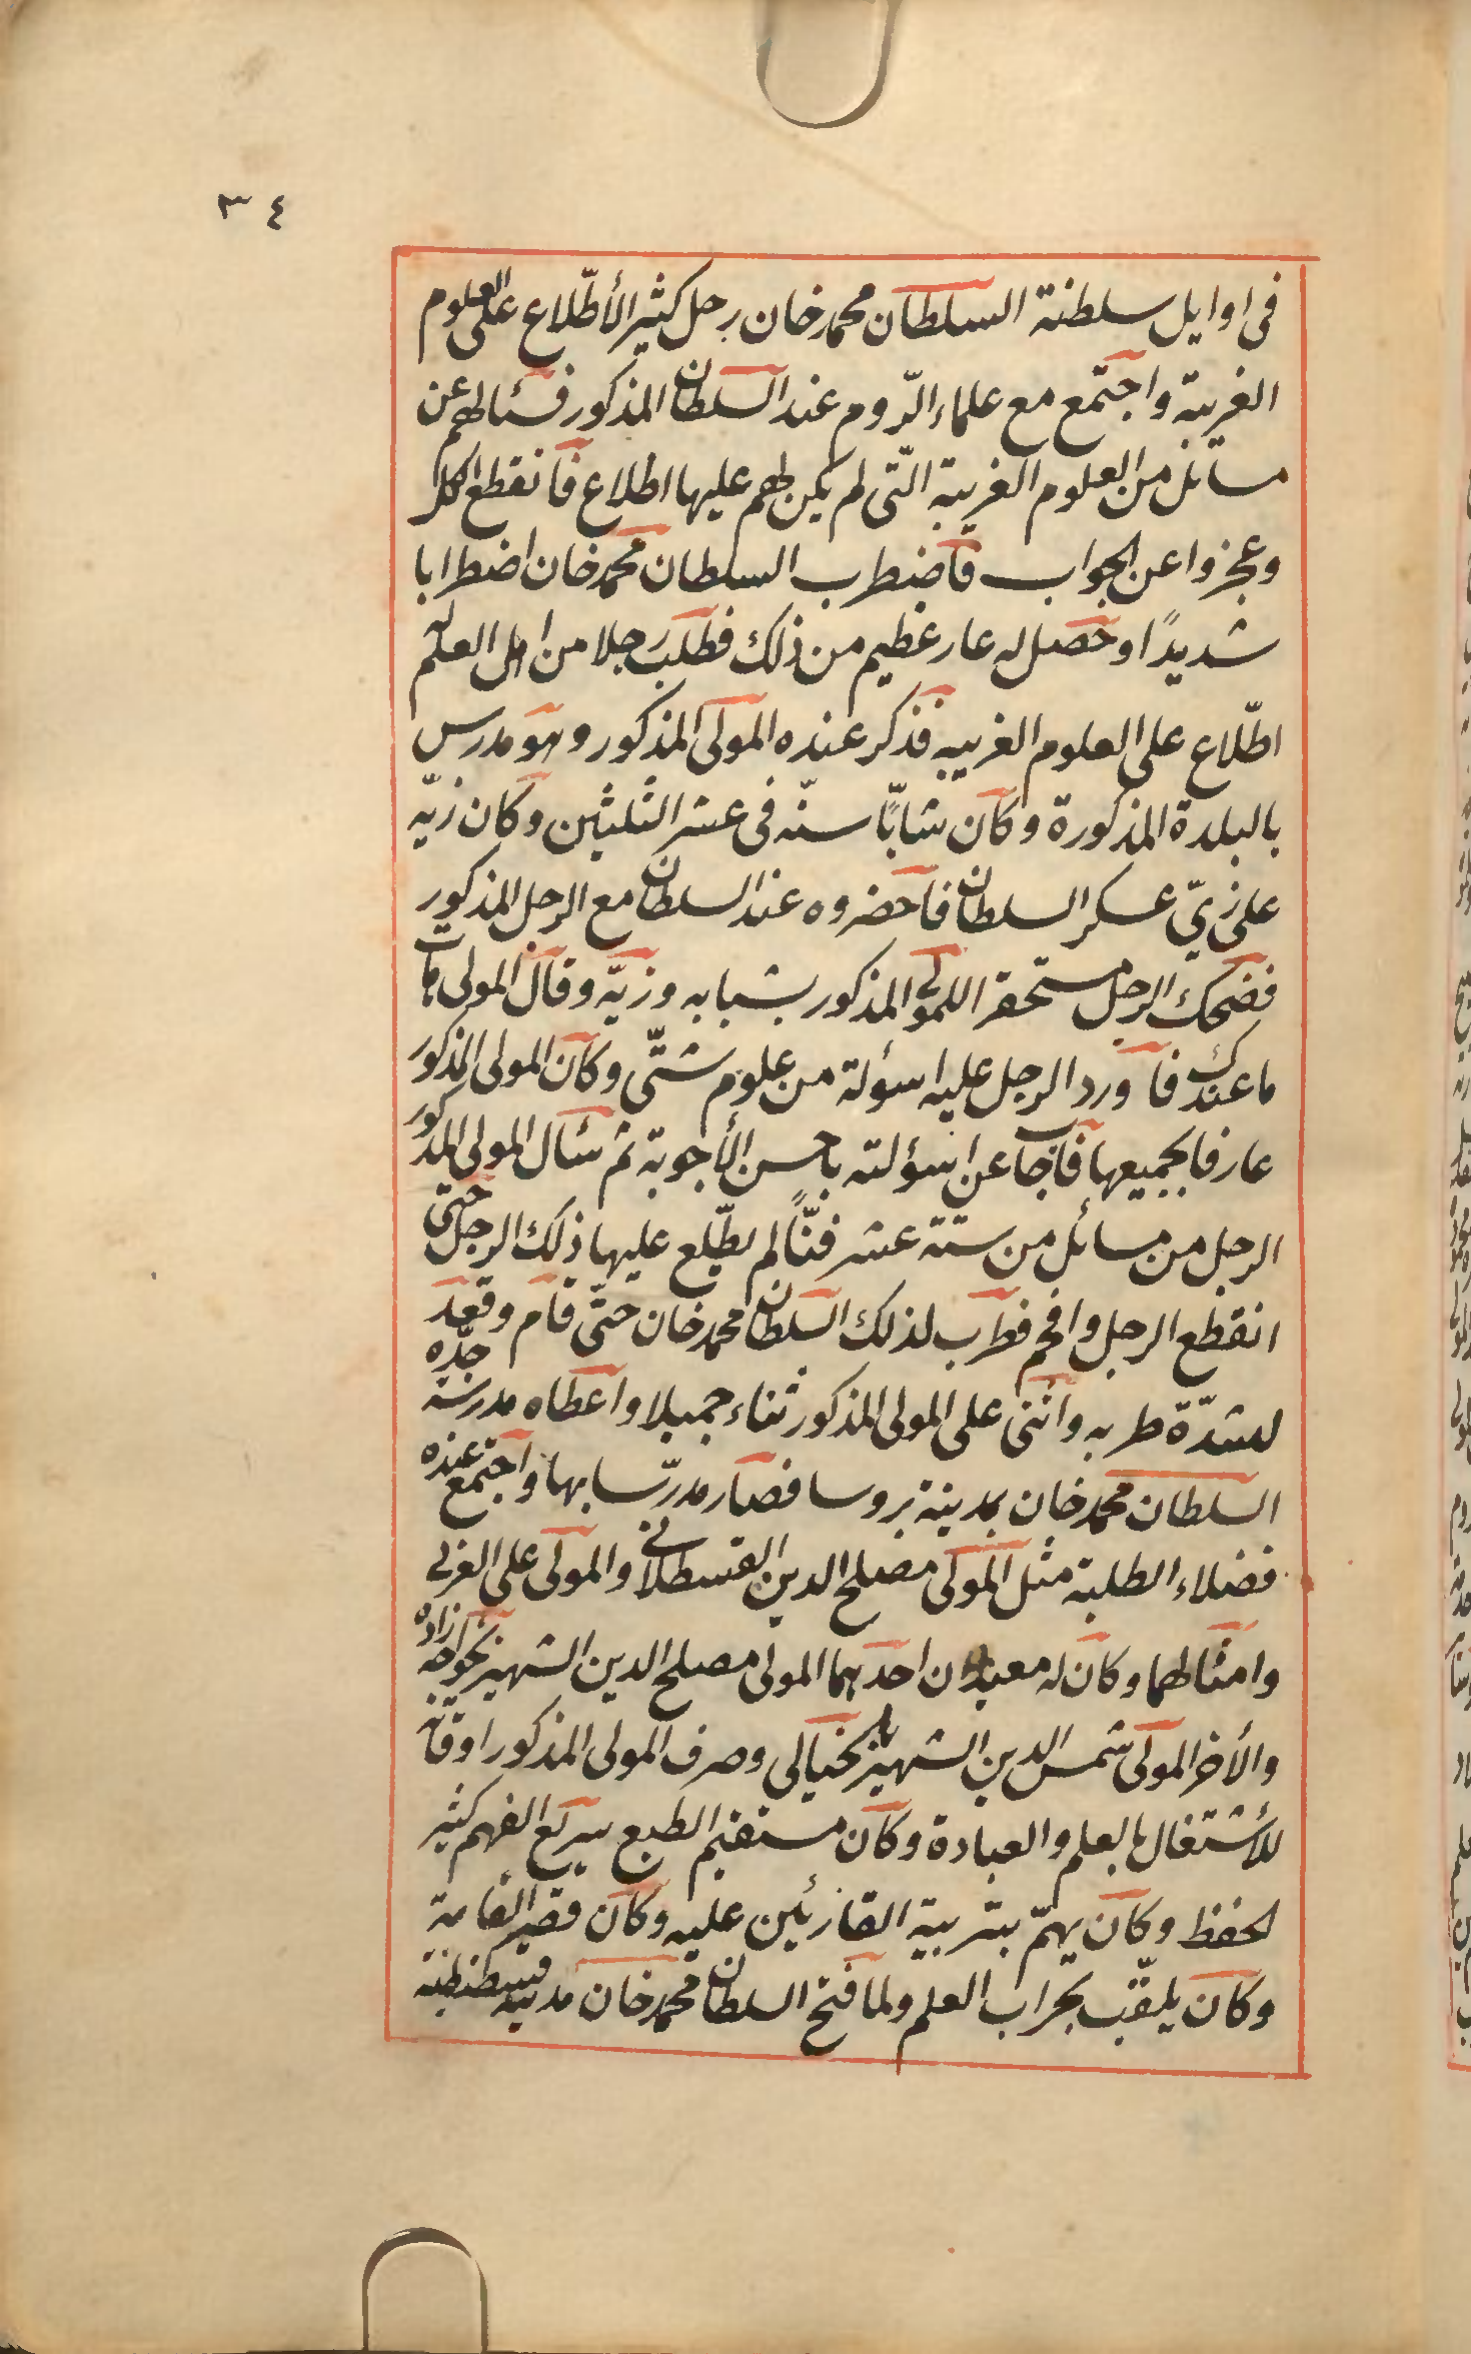 ٣٤
فى اوايل سلطنة السلطان محمد خان رجل كثير الأطّلاع على العلوم
الغريبة واجتمع مع علماء الرّوم عند السلطان المذكور فسئالهم عن
مسائل من العلوم الغريبة التّى لم يكن لهم عليها اطلاع فانقطع الكل
وعجزوا عن الجواب فاضطرب السلطان محمد خان اضطرابا
شديدًا وحصل له عار عظيم من ذلك فطلب رجلا من اهل العلم له
اطّلاع على العلوم الغريبه فذكر عنده المولى المذكور وهو مدرس
بالبلدة المذكورة وكان شابّا سنّه فى عشر الثلثين وكان زيّه
على زىّ عسكر السلطان فاحضروه عند السلطان مع الرجل المذكور
فضحك الرجل مستحقرا للمولى المذكور بشبابه وزيّه وقال المولى هات
ما عندك فاورد الرجل عليه اسؤلة من علوم شتّى وكان المولى المذكور
عارفا بجميعها فاجاب عن اسؤلته باحسن الأجوبة ثم سئال المولى المذكور
الرجل من مسائل من ستة عشر فنًّا لم يطّلع عليها ذلك الرجل حتى
انقطع الرجل وافحم فطرب لذلك السلطان محمد خان حتّى قام وقعد
لشدّة طربه واثنى على المولى المذكور ثناء جميلا واعطاه مدرسة جدّه
السلطان محمد خان بمدينة بروسا فصار مدرّسا بها واجتمع عنده
فضلاء الطلبة مثل المولى مصلح الدين القسطلانى والمولى على العربى
وامثالهما وكان له معيدان احدهما المولى مصلح الدين الشهير بخواجه زاده
والأخر المولى شمس الدين الشهير بالخيالى وصرف المولى المذكور اوقاته
للأشتغال بالعلم والعبادة وكان مستقيم الطبع سريع الفهم كثير
لحفظ وكان يهتمّ بتربية القارئين عليه وكان قصير القامة
وكان يلقّب بجراب العلم ولما فتح السلطان محمد خان مدينة قسطنطنية